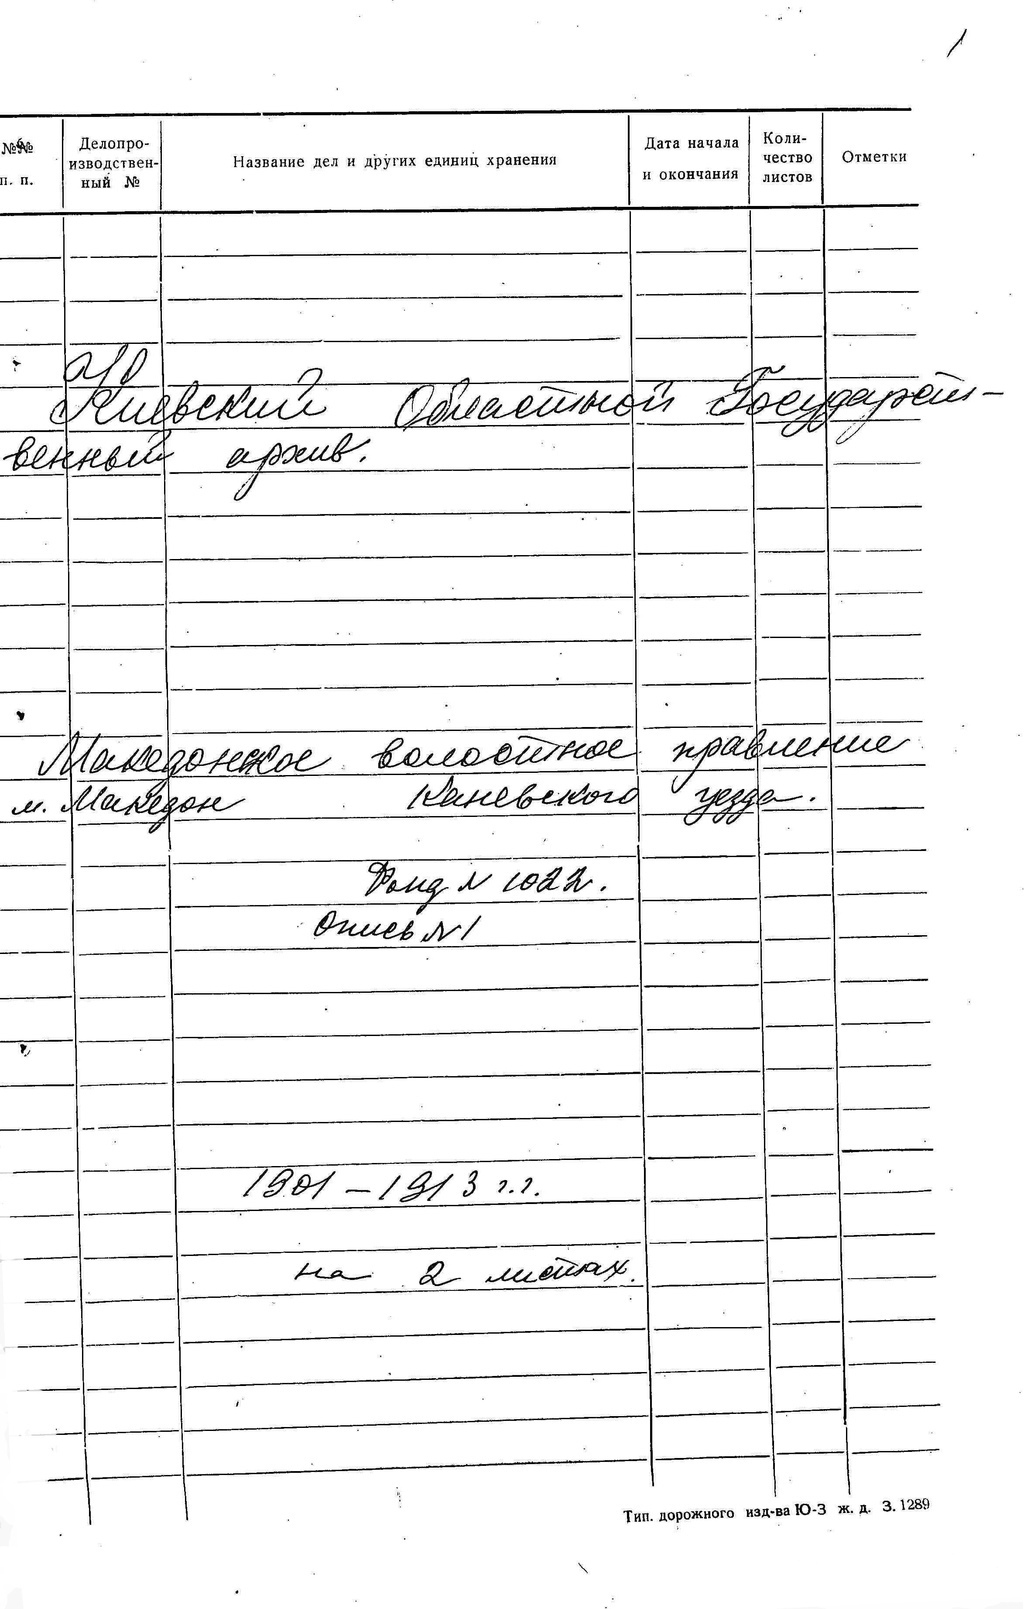 1
№№ п. п.
Делопро-
изводствен-
ный №
Название дел и других единиц хранения
Дата начала
и окончания
Коли-
чество
листов
Отметки
Киевский Областной Государст-
венный архив.
Македонское волостное правление
м. Македон Каневского уезда.
Фонд № 1022.
Опись № 1
1901 – 1913 г.г.
на 2 листах.
Тип. дорожного изд-ва Ю-З ж. д. З. 1289